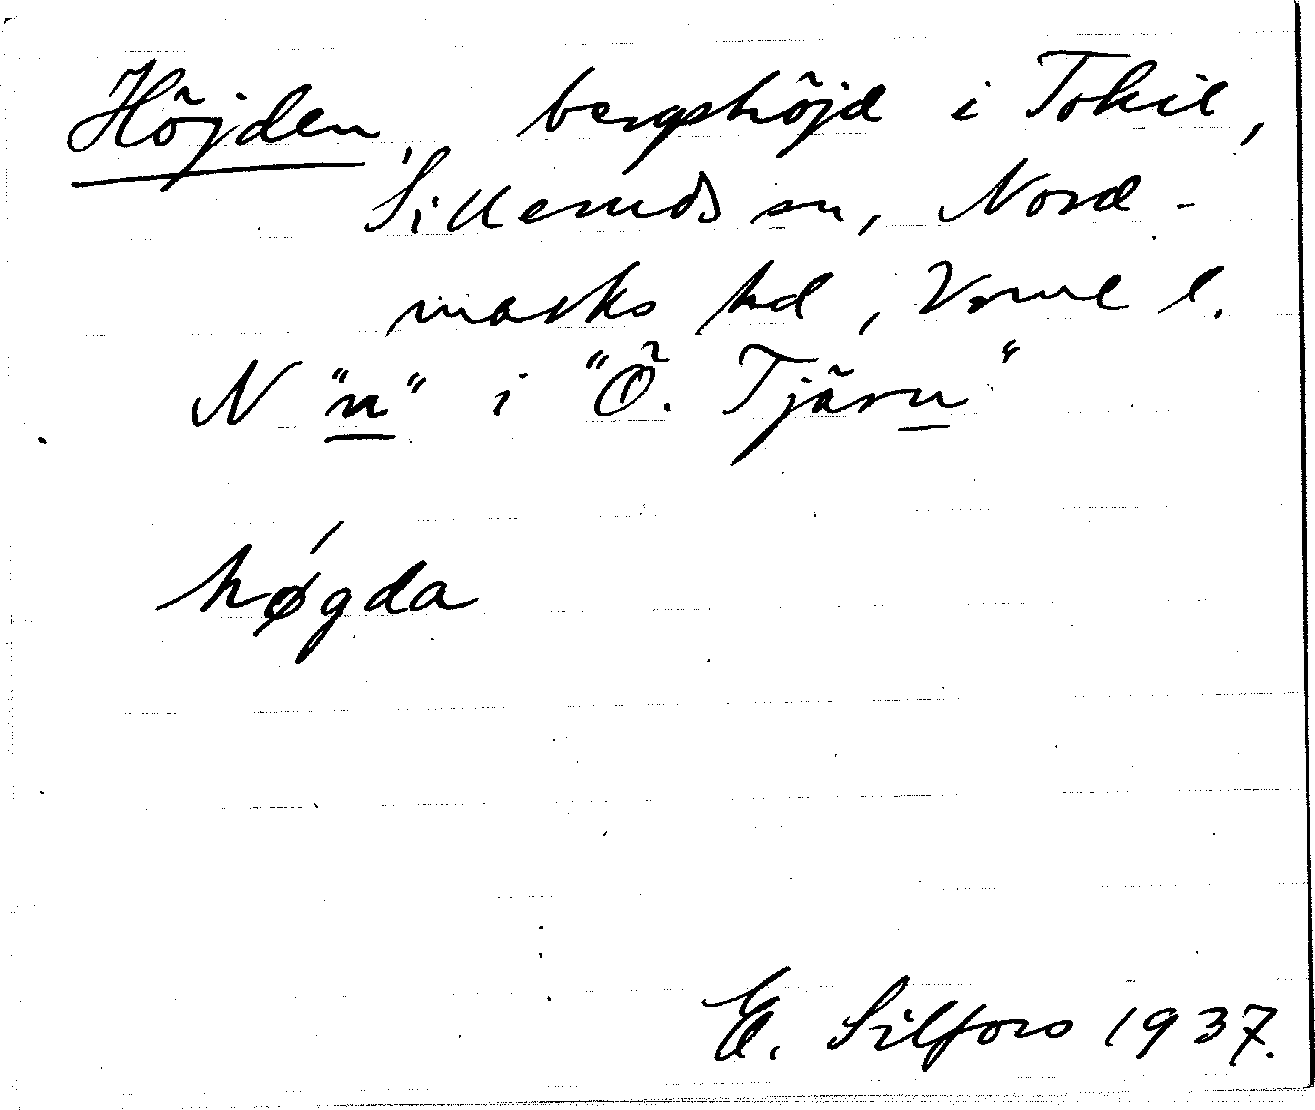 Höjden, bergshöjd i Tokil,
Silleruds sn, Nord-
marks hd, Vrml l.
N "n" i "Ö. Tjärn"
høgda
E. Silfors 1937.